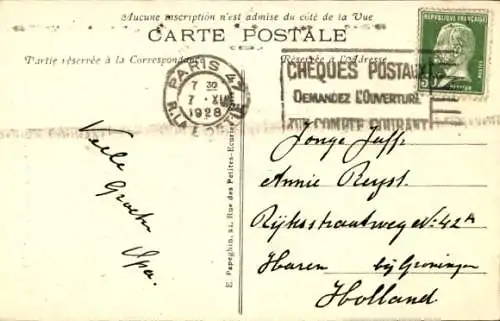 Aucune inscription n'est admise du côté de la Vue
CARTE POSTALE
Partie réservée à la Correspondance
Réservée à l'Adresse
PARIS 47
7 30
7 · XII
1928
CHÈQUES POSTAUX
DEMANDEZ L'OUVERTURE
COMPTE COURANT
RÉPUBLIQUE FRANÇAISE
POSTES
Veele
Groeten
Opa.
E. Papeghin, 21, Rue des Petites-Ecuries
Jonge Juffr
Annie Reyst
Rijksstraatweg No 42a
Haren bij Groningen
Holland